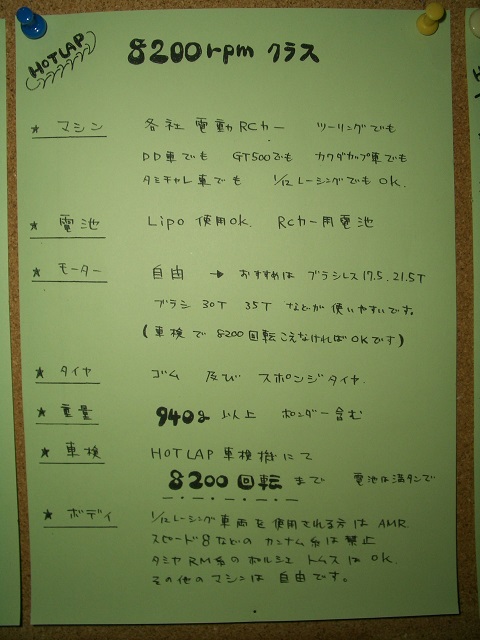 HOTLAP 8200rpm クラス
★ マシン 各社 電動RCカー ツーリングでも
DD車でも GT500でも カワダカップ車でも
タミチャレ車でも 1/12レーシングでもOK.
★ 電池 Lipo 使用OK. RCカー用電池
★ モーター 自由 → おすすめは ブラシレス17.5.21.5T
ブラシ 30T 35T などが使いやすいです。
(車検で8200回転こえなければOKです)
★ タイヤ ゴム 及び スポンジタイヤ.
★ 重量 940g 以上 ポンダー含む
★ 車検 HOTLAP 車検機にて
8200回転まで 電池は満タンで
★ ボディ 1/12レーシング車両を使用される方は AMR.
スピード8などの カンナム系は禁止
タミヤRM系のポルシェ トムスはOK.
その他のマシンは 自由です。